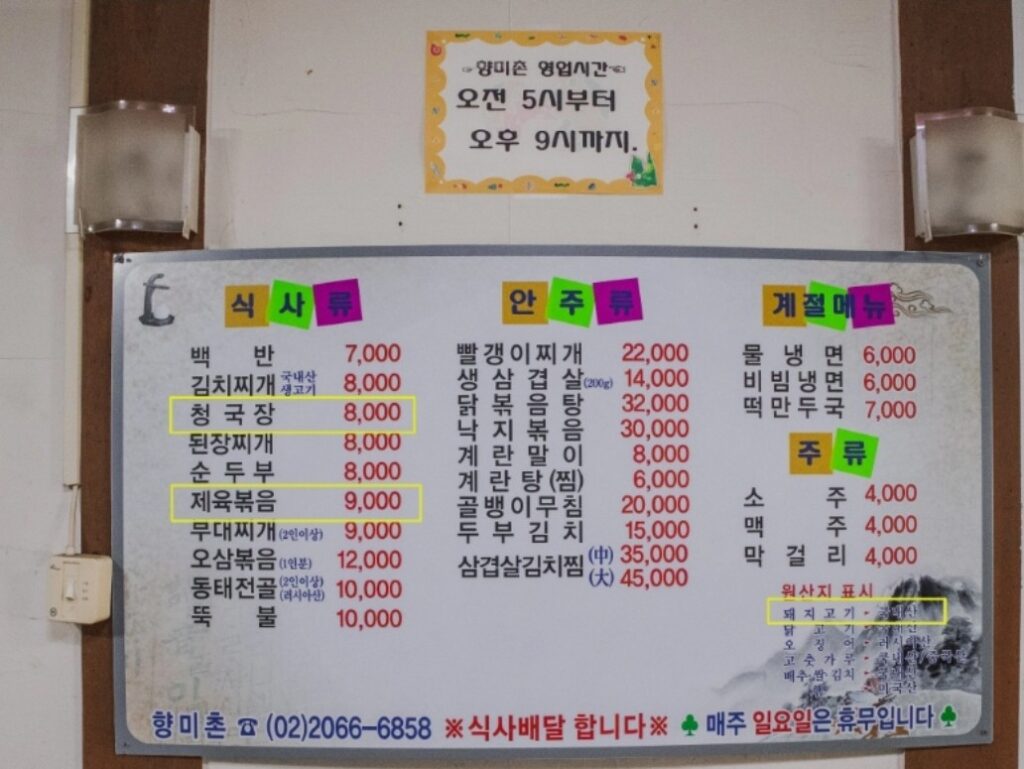 ☞향미촌 영업시간☜
오전 5시부터
오후 9시까지.
식사류
백반 7,000
김치찌개 국내산 생고기 8,000
청국장 8,000
된장찌개 8,000
순두부 8,000
제육볶음 9,000
부대찌개 (2인이상) 9,000
오삼볶음 (1인분) 12,000
동태전골 (2인이상) (러시아산) 10,000
뚝불 10,000
안주류
빨갱이찌개 22,000
생삼겹살 (200g) 14,000
닭볶음탕 32,000
낙지볶음 30,000
계란말이 8,000
계란탕(찜) 6,000
골뱅이무침 20,000
두부김치 15,000
삼겹살김치찜 (中) 35,000
(大) 45,000
계절메뉴
물냉면 6,000
비빔냉면 6,000
떡만두국 7,000
주류
소주 4,000
맥주 4,000
막걸리 4,000
원산지 표시
돼지고기 - 국내산
닭고기 -
오징어 - 러시아산
고춧가루 - 국내산/중국산
배추쌀김치 -
미국산
향미촌 ☎ (02)2066-6858 ※식사배달 합니다※ ♣ 매주 일요일은 휴무입니다 ♣